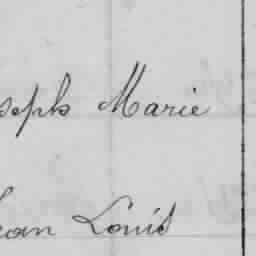 oseph Marie
Jean Louis